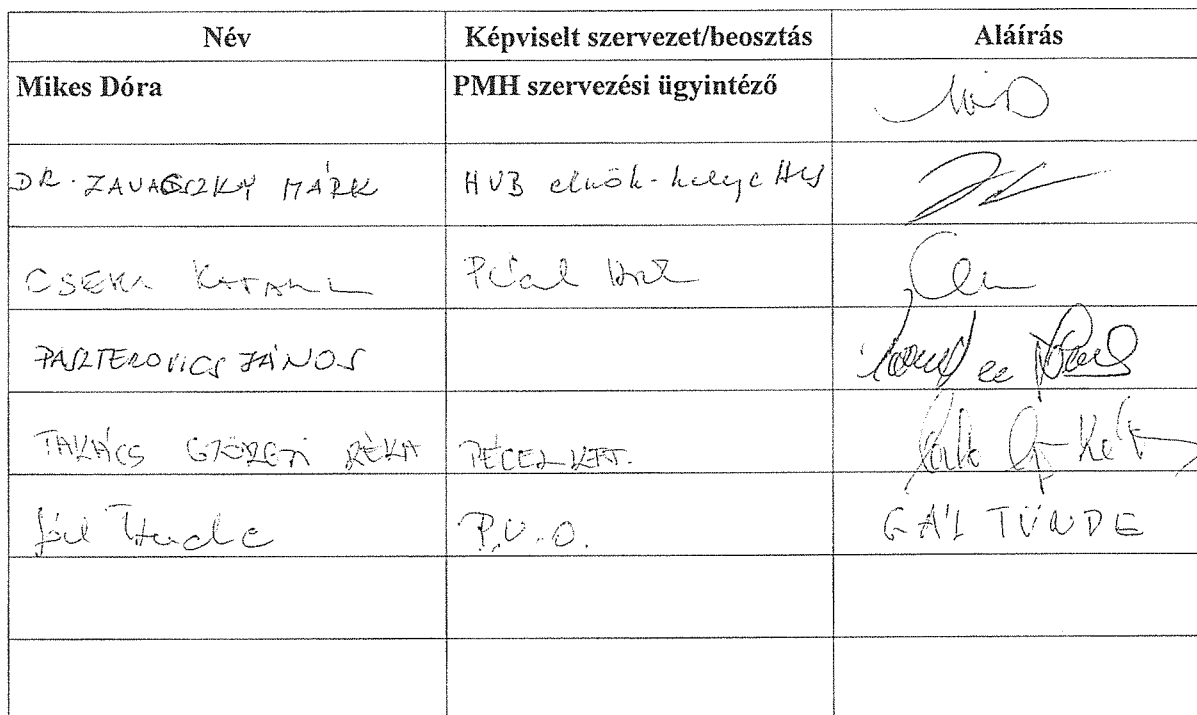 Név Képviselt szervezet/beosztás Aláírás
Mikes Dóra PMH szervezési ügyintéző
DR. ZAVAGSZKY MÁRK HVB elnök-helyettes
CSEKE KATALIN
PASZTEROVICS JÁNOS
TAKÁCS GYÖRGYI RÉKA PÉCEL KFT.
Gál Tünde P.V.O. GÁL TÜNDE